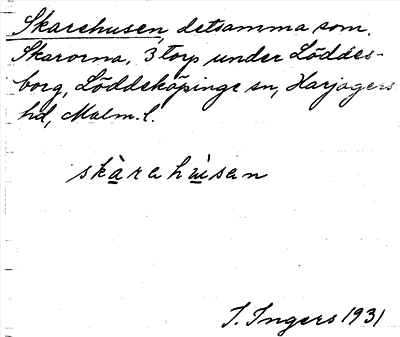 Skarehusen, detsamma som
Skarorna, 3 torp under Löddes-
borg, Löddeköpinge sn, Harjagers
hd, Malm. l.
skàrahùisan
I. Ingers 1931